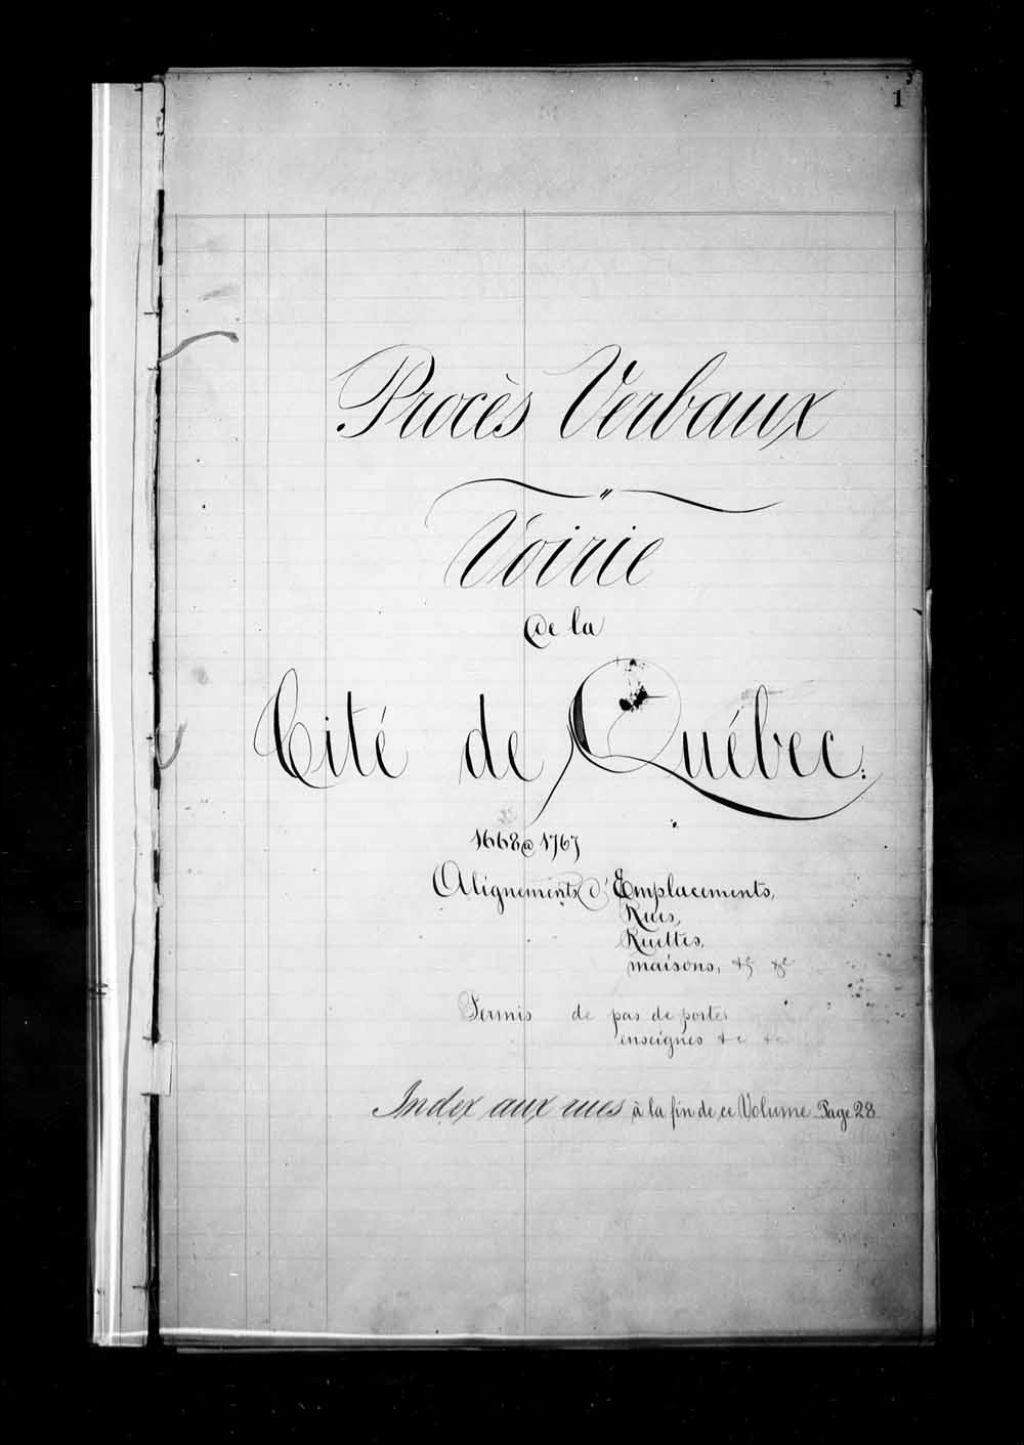 1
Procès Verbaux
"
Voirie
de la
Cité de Québec.
1668 @ 1767
Alignements d'Emplacements,
Rues,
Ruettes,
maisons, &c &c
Permis de pas de portes
enseignes &c &c
Index aux rues à la fin de ce Volume Page 28